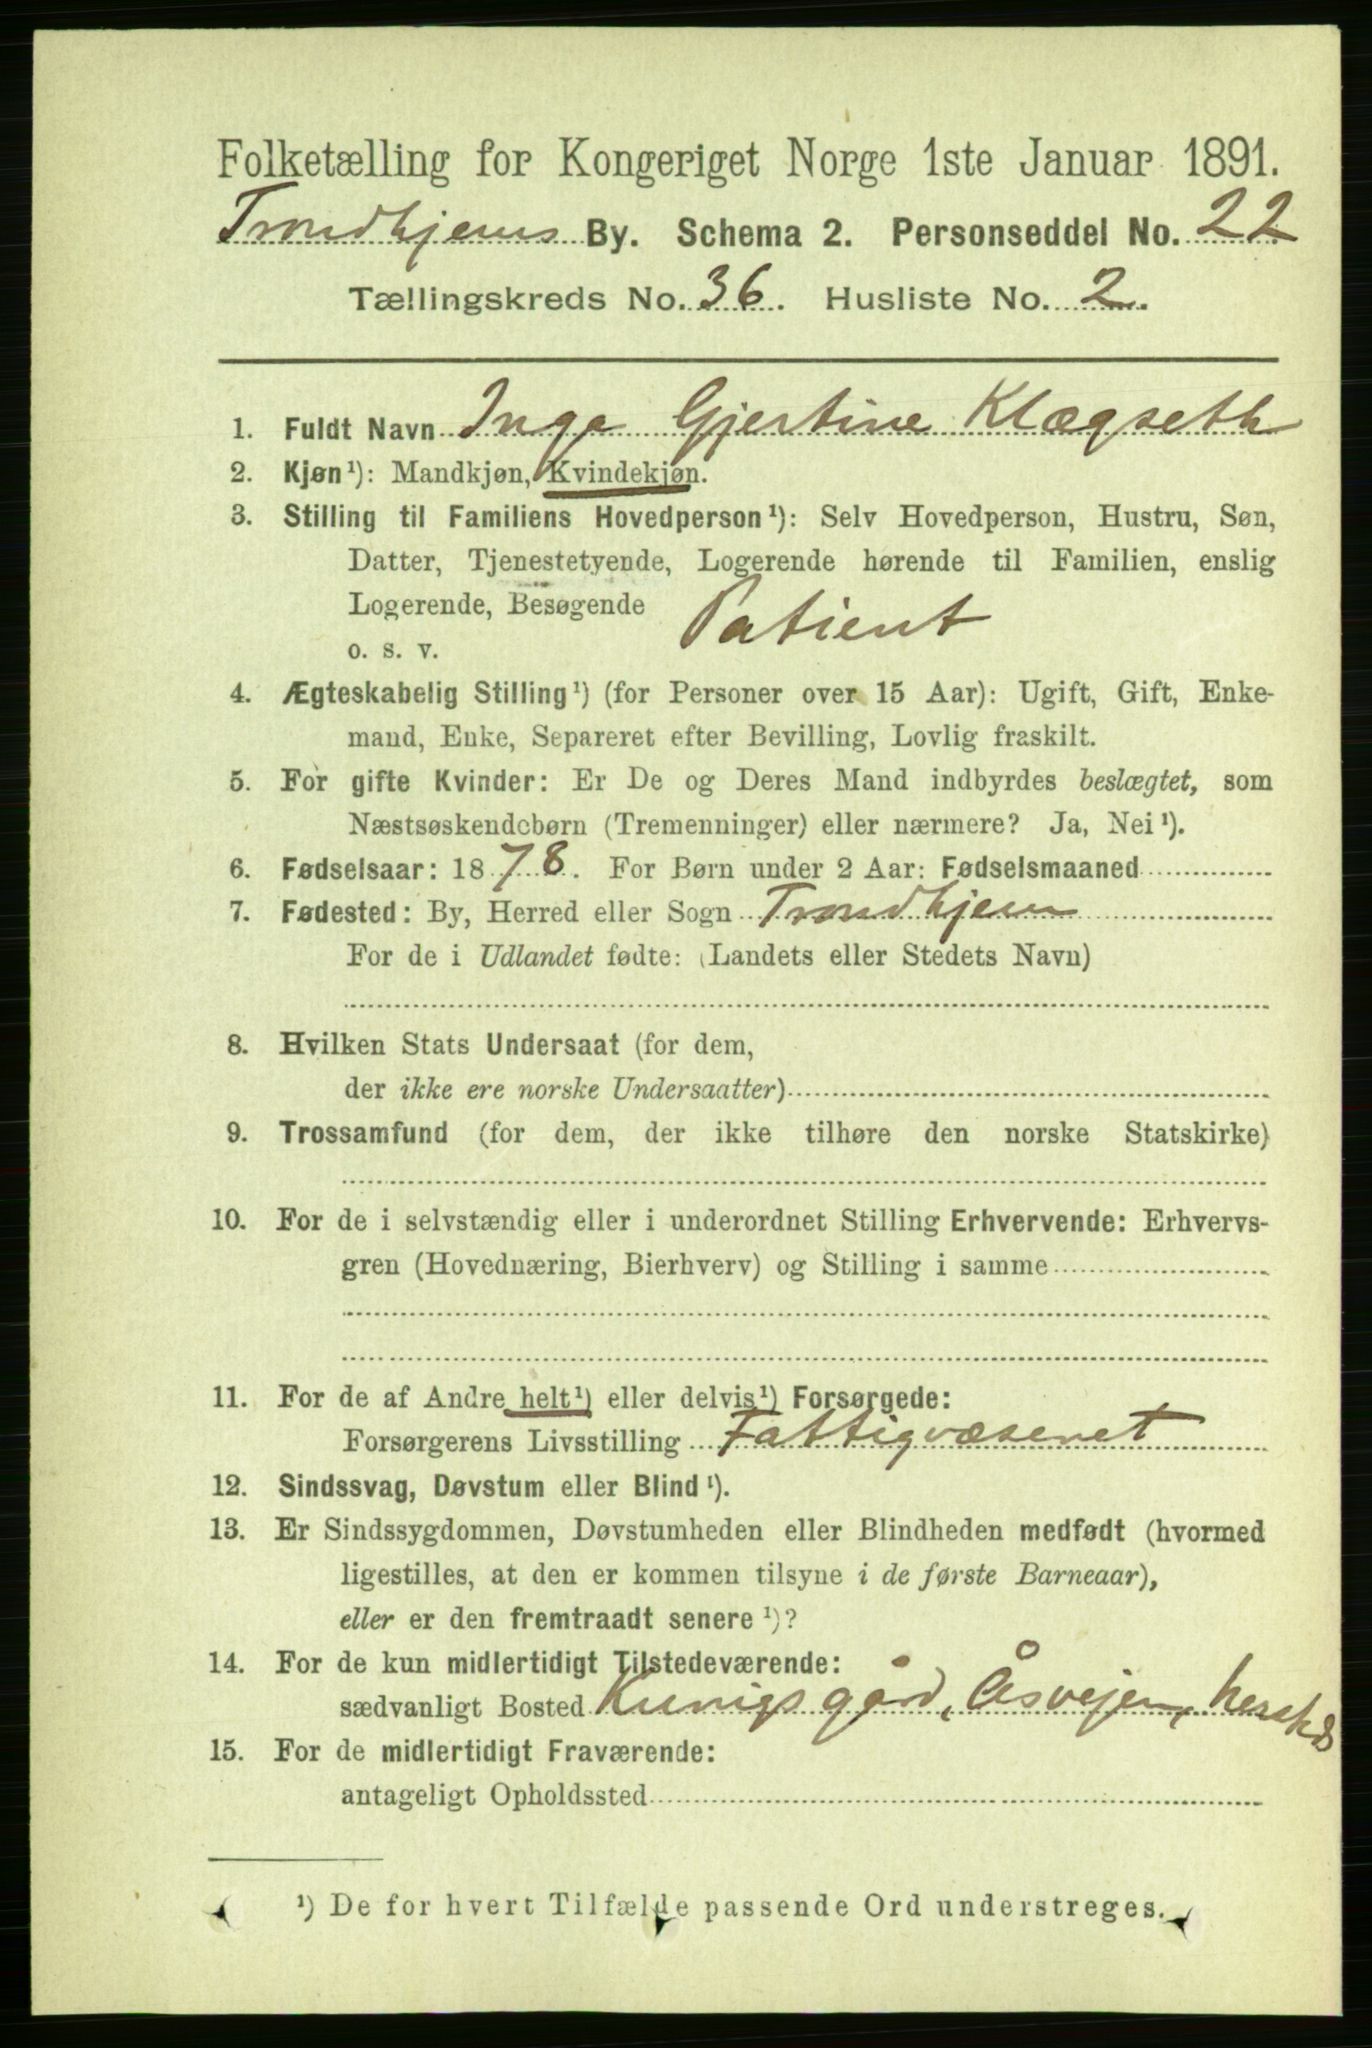 Folketælling for Kongeriget Norge 1ste Januar 1891.
Trondhjems By. Schema 2. Personseddel No. 22
Tællingskreds No. 36. Husliste No. 2.
1. Fuldt Navn Inga Gjertine Klægseth
2. Kjøn¹): Mandkjøn, Kvindekjøn.
3. Stilling til Familiens Hovedperson¹): Selv Hovedperson, Hustru, Søn,
Datter, Tjenestetyende, Logerende hørende til Familien, enslig
Logerende, Besøgende Patient
o. s. v.
4. Ægteskabelig Stilling¹) (for Personer over 15 Aar): Ugift, Gift, Enke-
mand, Enke, Separeret efter Bevilling, Lovlig fraskilt.
5. For gifte Kvinder: Er De og Deres Mand indbyrdes beslægtet, som
Næstsøskendebørn (Tremenninger) eller nærmere? Ja, Nei¹).
6. Fødselsaar: 1878. For Børn under 2 Aar: Fødselsmaaned
7. Fødested: By, Herred eller Sogn Trondhjem
For de i Udlandet fødte: (Landets eller Stedets Navn)
8. Hvilken Stats Undersaat (for dem,
der ikke ere norske Undersaatter)
9. Trossamfund (for dem, der ikke tilhøre den norske Statskirke)
10. For de i selvstændig eller i underordnet Stilling Erhvervende: Erhvervs-
gren (Hovednæring, Bierhverv) og Stilling i samme
11. For de af Andre helt¹) eller delvis¹) Forsørgede:
Forsørgerens Livsstilling Fattigvæsenet
12. Sindssvag, Døvstum eller Blind¹).
13. Er Sindssygdommen, Døvstumheden eller Blindheden medfødt (hvormed
ligestilles, at den er kommen tilsyne i de første Barneaar),
eller er den fremtraadt senere¹)?
14. For de kun midlertidigt Tilstedeværende:
sædvanligt Bosted Kunigsgård, Åsvejen,
15. For de midlertidigt Fraværende:
antageligt Opholdssted
¹) De for hvert Tilfælde passende Ord understreges.